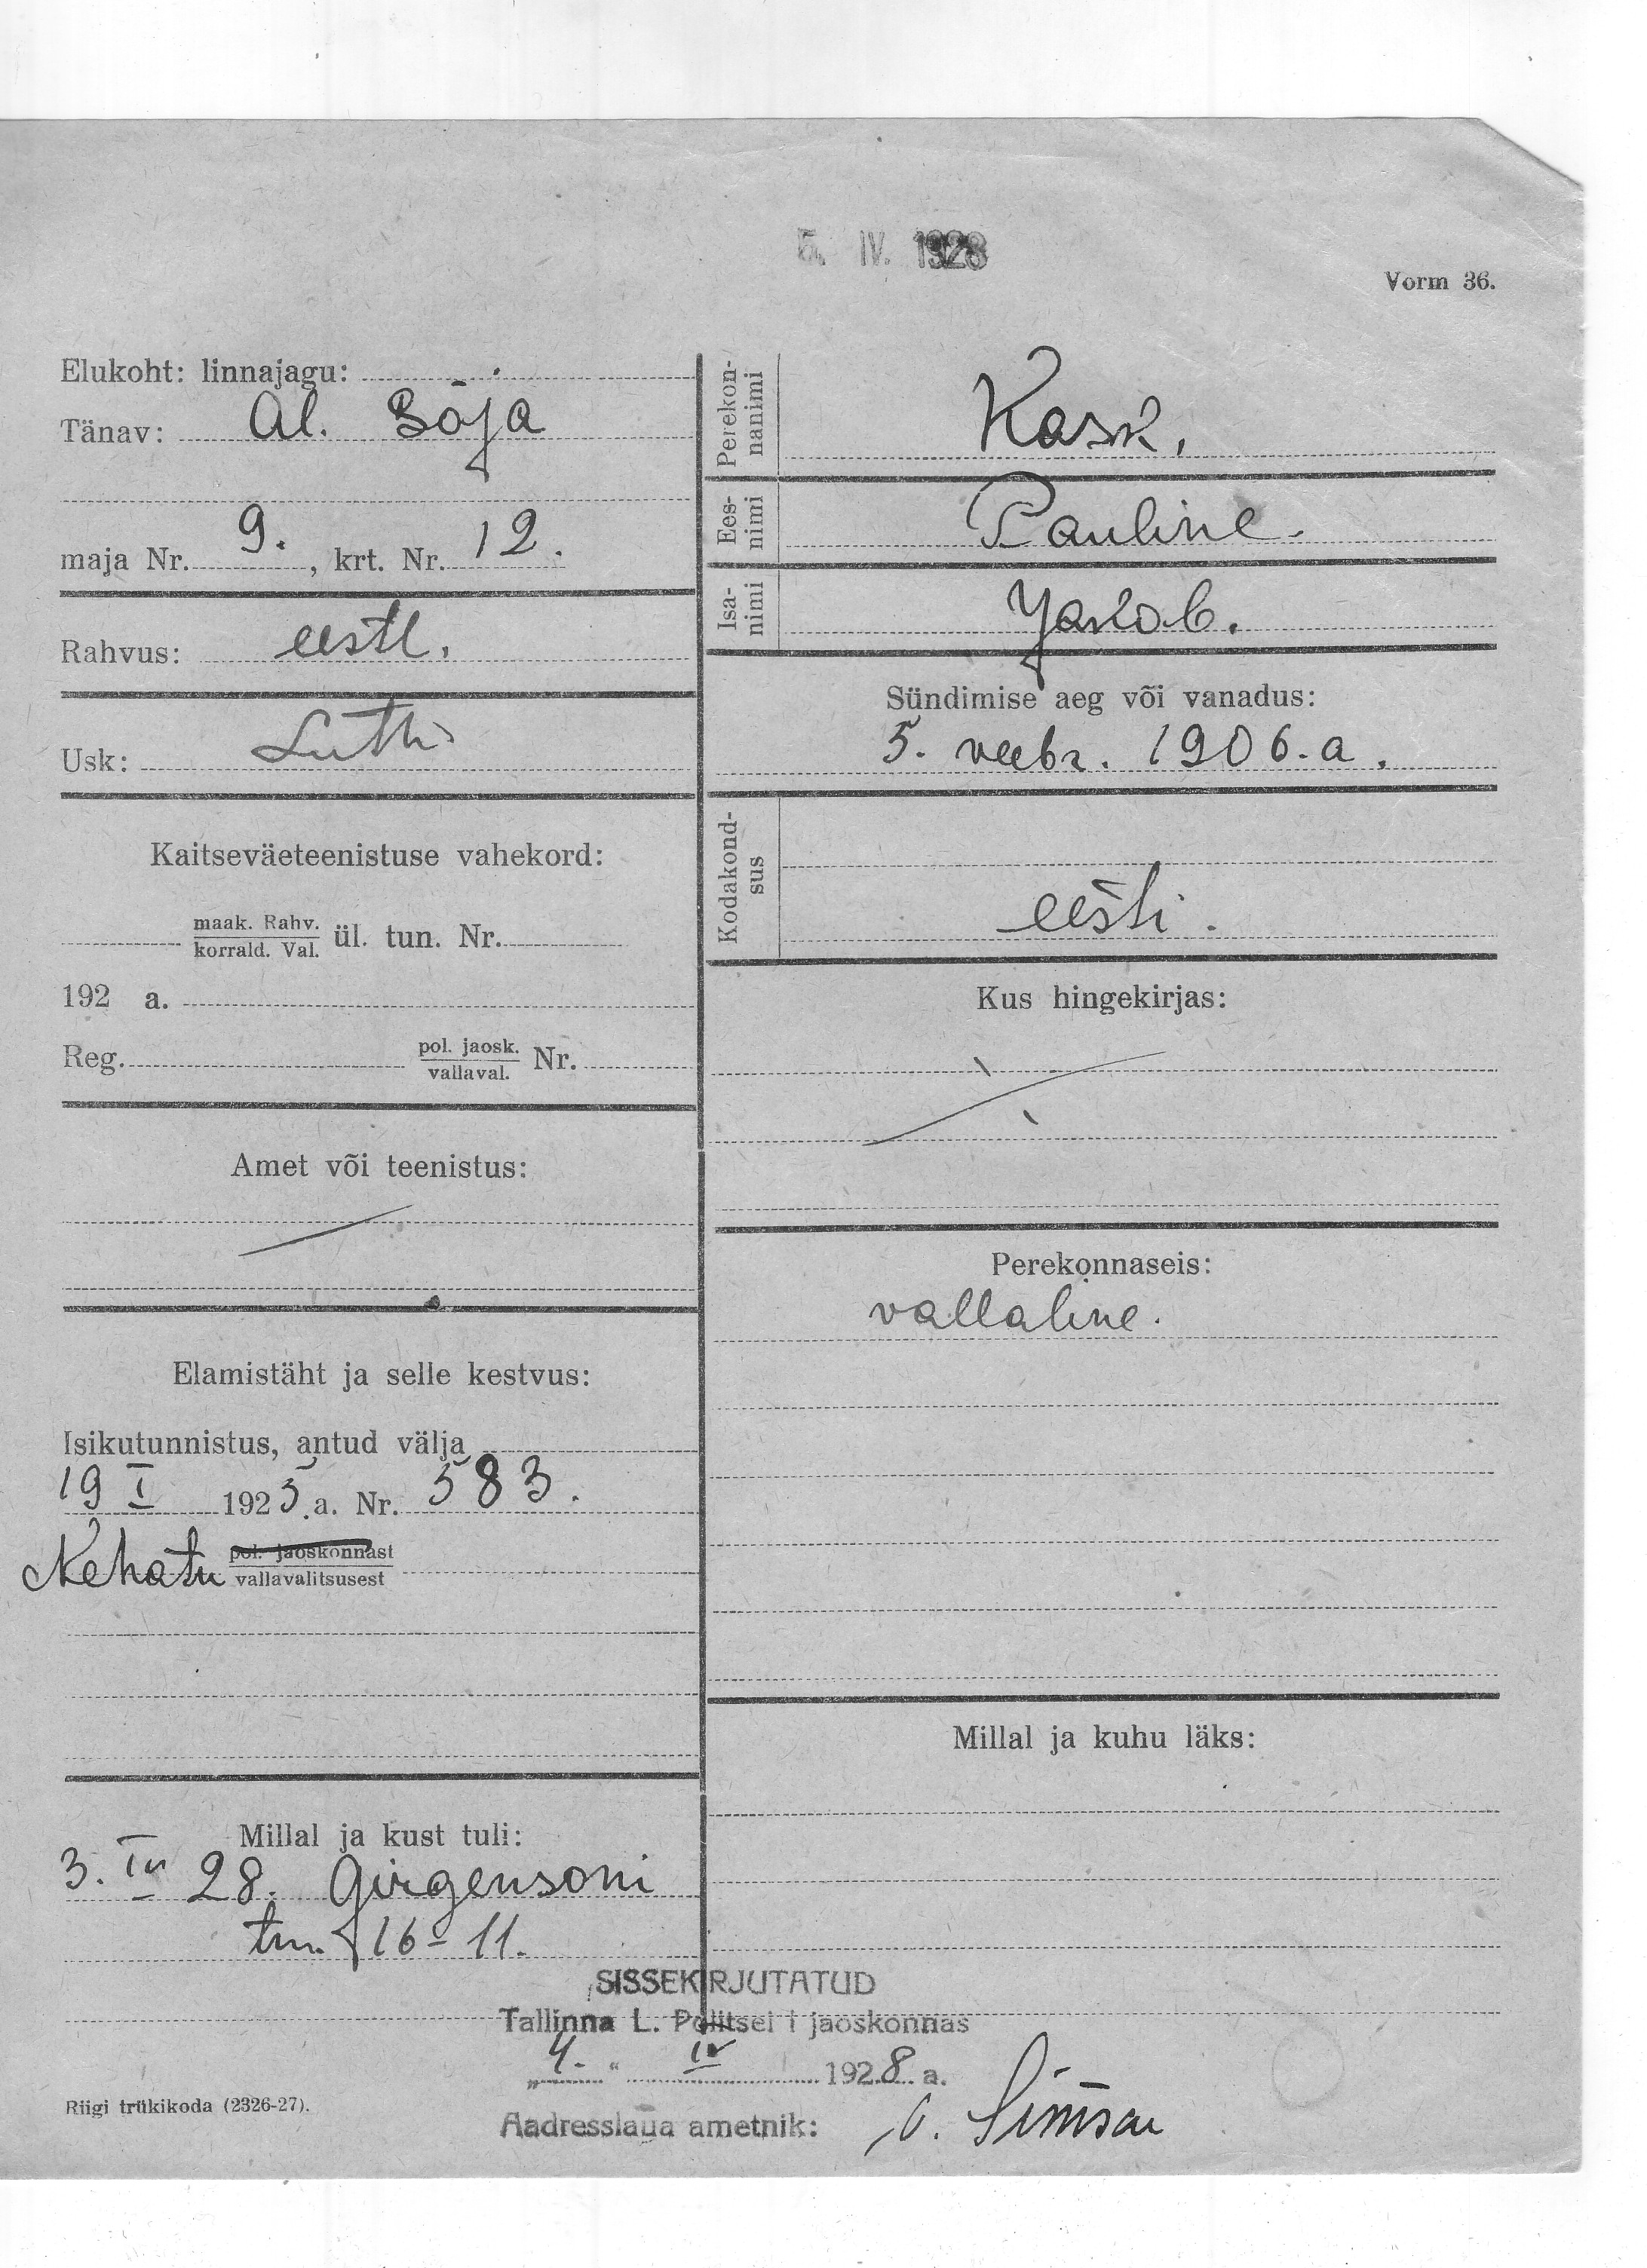 5. IV. 1928
Vorm 36.
Elukoht: linnajagu:
Tänav: Al. Sõja
maja Nr. 9. , krt. Nr. 12.
Rahvus: eestl.
Usk: Luth.
Kaitseväeteenistuse vahekord:
maak. Rahv.
korrald. Val. ül. tun. Nr.
192 a.
Reg. pol. jaosk. Nr.
vallaval.
Amet või teenistus:
Elamistäht ja selle kestvus:
Isikutunnistus, antud välja
19 I 1925. a. Nr. 583.
Nehatu pol. jaoskonnast
vallavalitsusest
Millal ja kust tuli:
3. IV 28. Girgensoni
tän. 16-11.
Perekon-
nanimi
Kask.
Ees-
nimi
Pauline.
Isa-
nimi
Jakob.
Sündimise aeg või vanadus:
5. veebr. 1906. a.
Kodakond-
sus
eesti.
Kus hingekirjas:
Perekonnaseis:
vallaline.
Millal ja kuhu läks:
SISSEKIRJUTATUD
Tallinna L. Politsei I jaoskonnas
„4.“ IV 1928 a.
Aadresslaua ametnik:
Riigi trükikoda (2326-27).